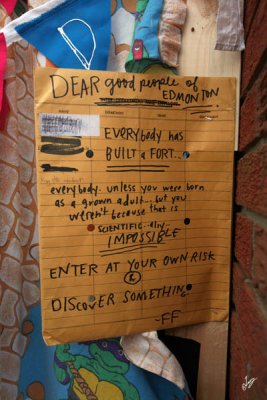 DEAR good people of
EDMONTON
EVERYbody has
BUILT a FORT...
everybody. unless you were born
as a grown adult... but you
weren't because that is
SCIENTIFIC-ally-
IMPOSSIBLE
ENTER AT YOUR OWN RISK
&
DISCOVER SOMETHING
-FF